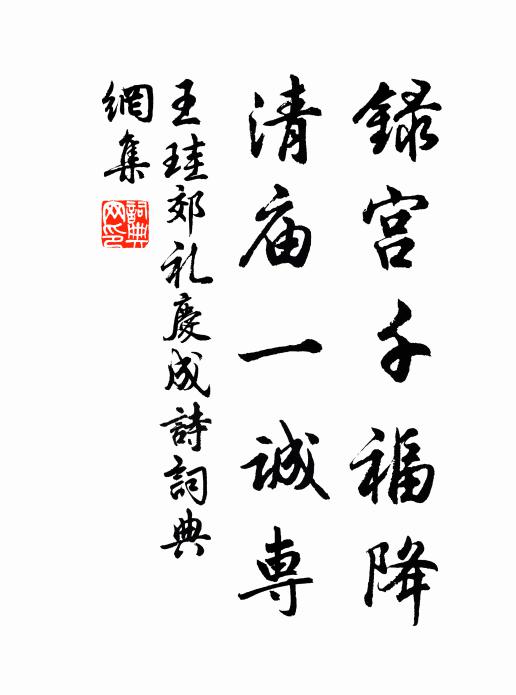 録宮千福降
清庙一誠専
王珪郊礼慶成詩詞典
網集
詞典网印